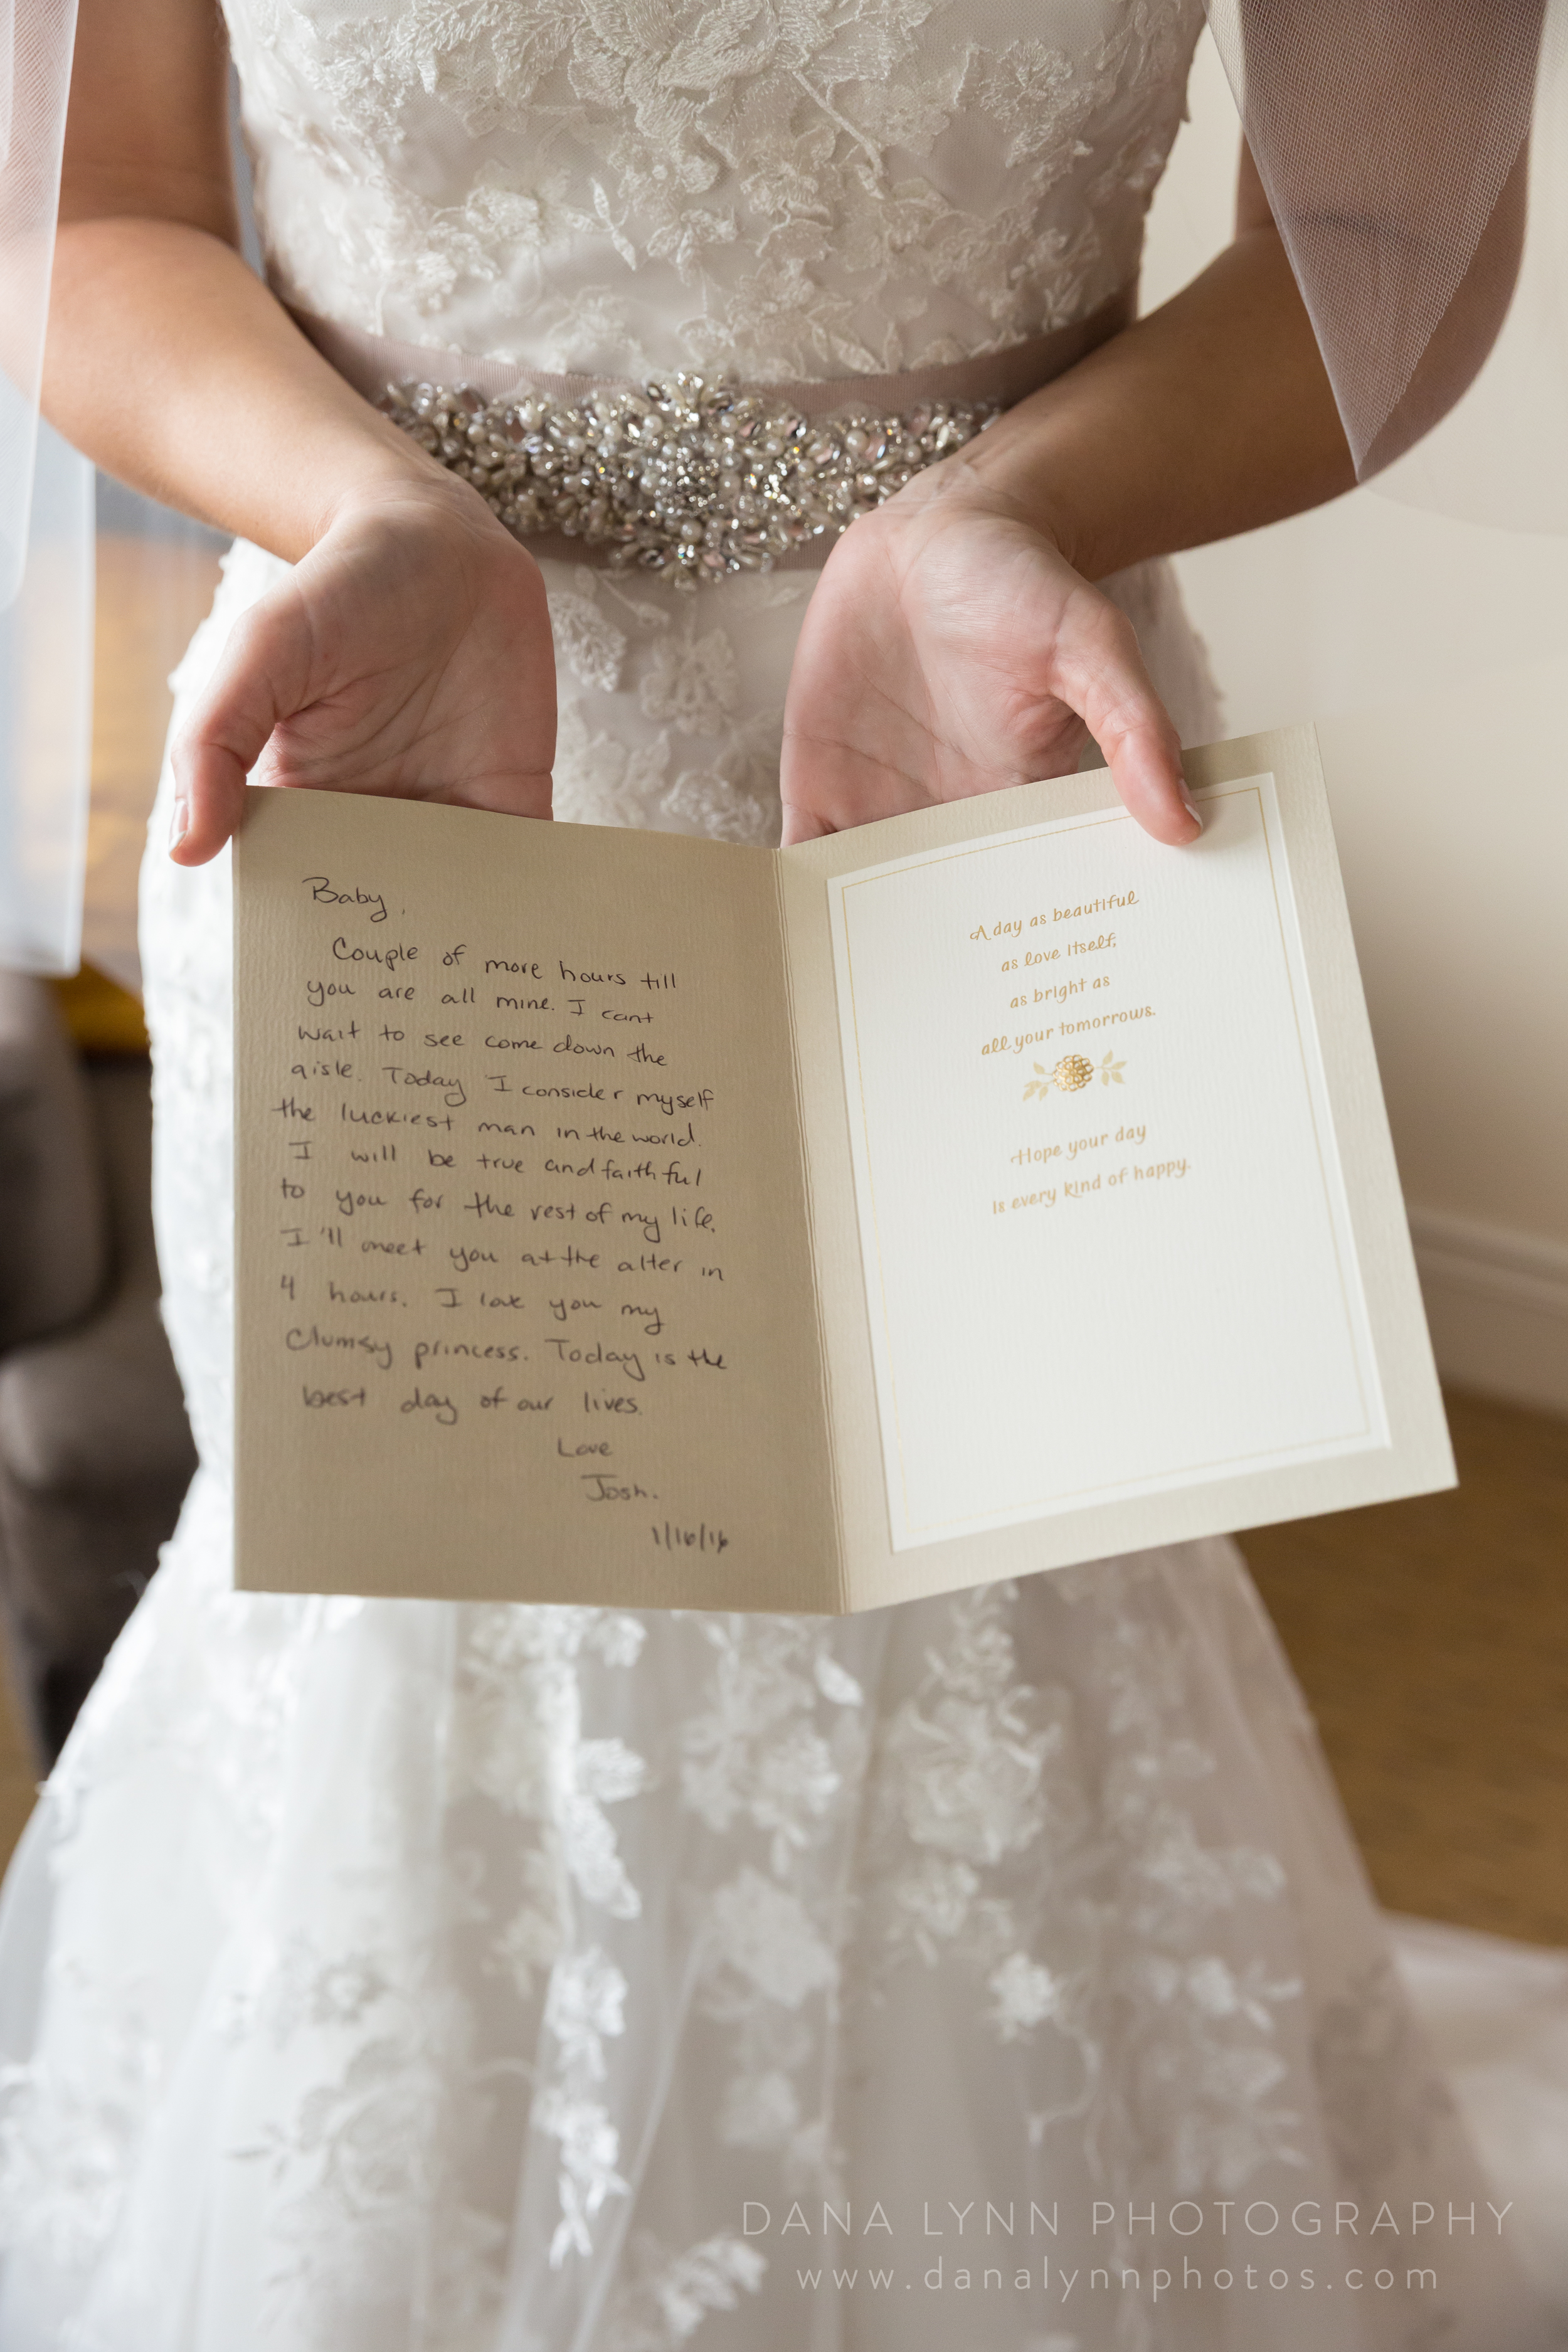 Baby,
Couple of more hours till
you are all mine. I cant
wait to see come down the
aisle. Today I consider myself
the luckiest man in the world.
I will be true and faithful
to you for the rest of my life.
I'll meet you at the alter in
4 hours. I love you my
Clumsy princess. Today is the
best day of our lives.
Love
Josh.
1/16/16
A day as beautiful
as love itself,
as bright as
all your tomorrows.
Hope your day
is every kind of happy.
DANA LYNN PHOTOGRAPHY
www.danalynnphotos.com